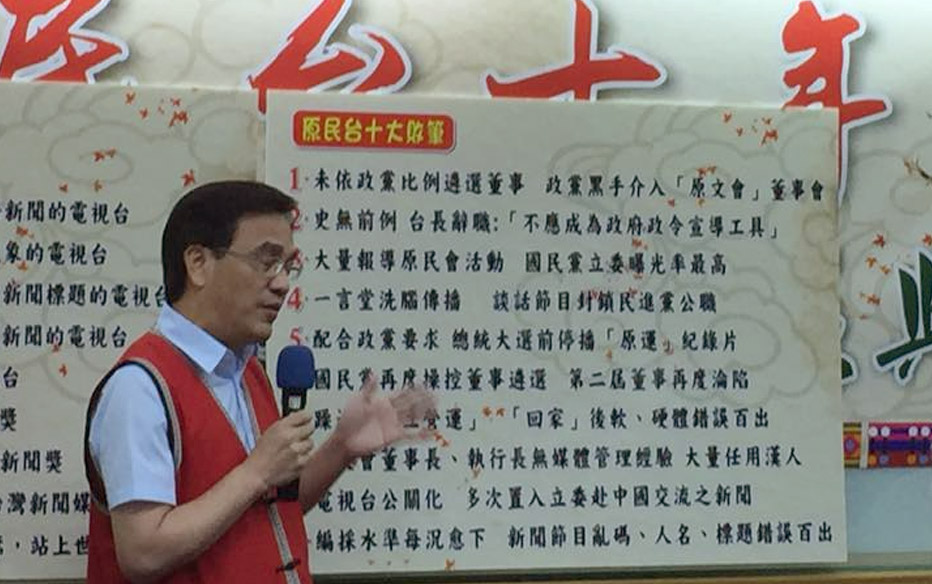 民台十年
新聞的電視台
象的電視台
新聞標題的電視
新聞的電視台
台
獎
新聞獎
台灣新聞媒
，站上世
原民台十大敗筆
1. 未依政黨比例遴選董事 政黨黑手介入「原文會」董事會
2. 史無前例 台長辭職:「不應成為政府政令宣導工具」
大量報導原民會活動 國民黨立委曝光率最高
4. 一言堂洗腦傳播 談話節目封鎖民進黨公職
5. 配合政黨要求 總統大選前停播「原運」紀錄片
國民黨再度操控董事遴選 第二屆董事再度淪陷
躁 主營運」 「回家」後軟、硬體錯誤百出
會董事長、執行長無媒體管理經驗 大量任用漢人
電視台公關化 多次置入立委赴中國交流之新聞
編採水準每況愈下 新聞節目亂碼、人名、標題錯誤百出